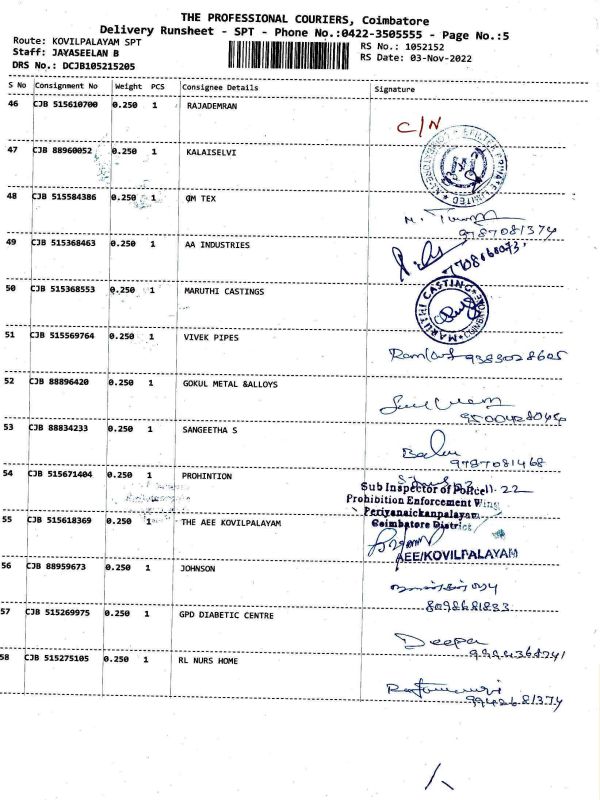 THE PROFESSIONAL COURIERS, Coimbatore
Delivery Runsheet - SPT - Phone No.:0422-3505555 - Page No.:5
Route: KOVILPALAYAM SPT
Staff: JAYASEELAN B
DRS No.: DCJB105215205
RS No.: 1052152
RS Date: 03-Nov-2022
S No Consignment No Weight PCS Consignee Details Signature
46 CJB 515610700 0.250 1 RAJADEMRAN
C/N
47 CJB 88960052 0.250 1 KALAISELVI
PRIVATE LIMITED
48 CJB 515584386 0.250 1 OM TEX
9787081374
49 CJB 515368463 0.250 1 AA INDUSTRIES
50 CJB 515368553 0.250 1 MARUTHI CASTINGS
MARUTHI CASTING
51 CJB 515569764 0.250 1 VIVEK PIPES
52 CJB 88896420 0.250 1 GOKUL METAL &ALLOYS
53 CJB 88834233 0.250 1 SANGEETHA S
Balu
9787081468
54 CJB 515671404 0.250 1 PROHINTION
Sub Inspector of Police
Prohibition Enforcement Wing
Periyanaickanpalayam
Coimbatore District
55 CJB 515618369 0.250 1 THE AEE KOVILPALAYAM
AEE/KOVILPALAYAM
56 CJB 88959673 0.250 1 JOHNSON
57 CJB 515269975 0.250 1 GPD DIABETIC CENTRE
Deepa
58 CJB 515275105 0.250 1 RL NURS HOME
9942681374